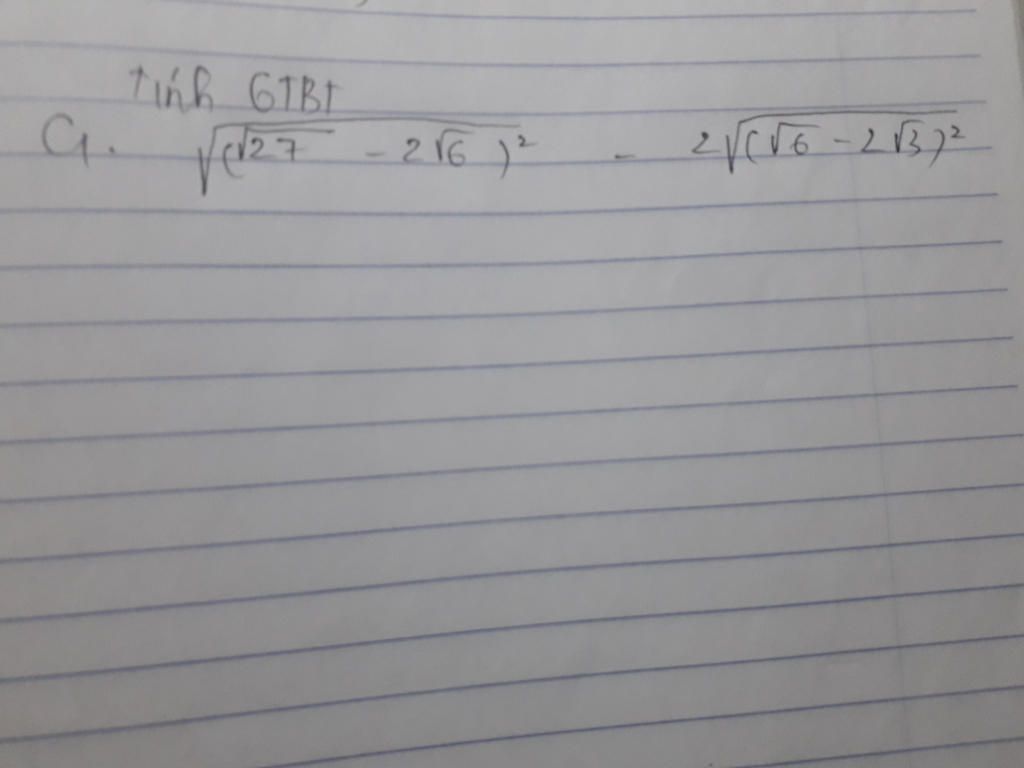 Tính GTBT
C1. √((√27 - 2√6)² - 2√((√6 - 2√3)²